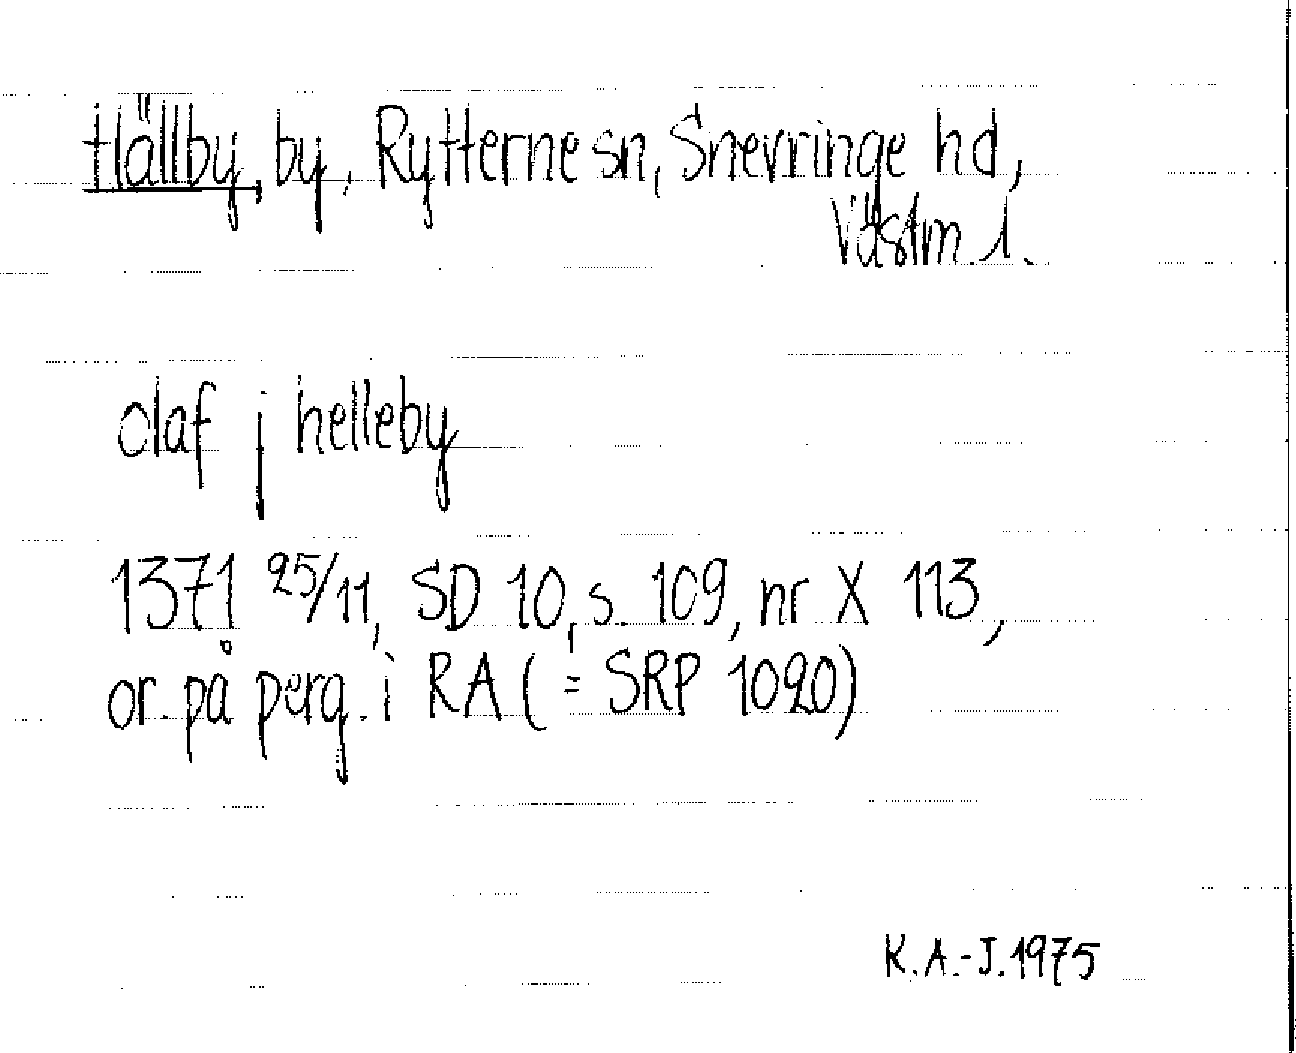 Hällby, by, Rytterne sn, Snevringe hd,
Västm. l.
olaf j helleby
1371 25/11, SD 10, s. 109, nr X 113,
or. på perg. i RA (= SRP 1020)
K.A.-J. 1975